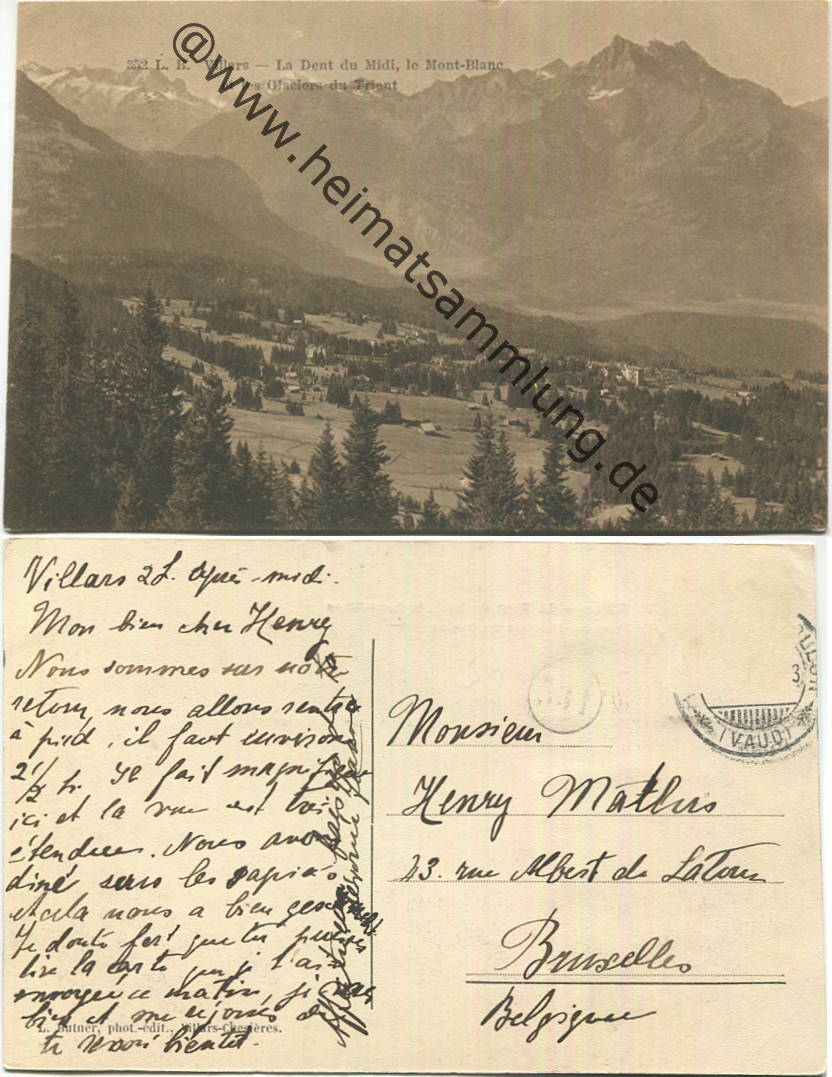 352 L. B. Villars — La Dent du Midi, le Mont-Blanc
les Glaciers du Trient
@www.heimatsammlung.de
Villars 2 h. après-midi.
Mon bien cher Henry
Nous sommes sur notre
retour, nous allons rentrer
à pied, il faut environ
2 1/2 h. Il fait magnifique
ici et la vue est très
étendue. Nous avons
diné sous les sapins
et cela nous a bien
Je doute fort que tu puisses
lire la carte que je t'ai
envoyée ce matin,
bien et me réjouis de
te revoir bientôt.
L. Butner, phot.-édit., Villars-Chesières.
Monsieur
Henry Mathis
23. rue Albert de Latour
Bruxelles
Belgique
(VAUD)